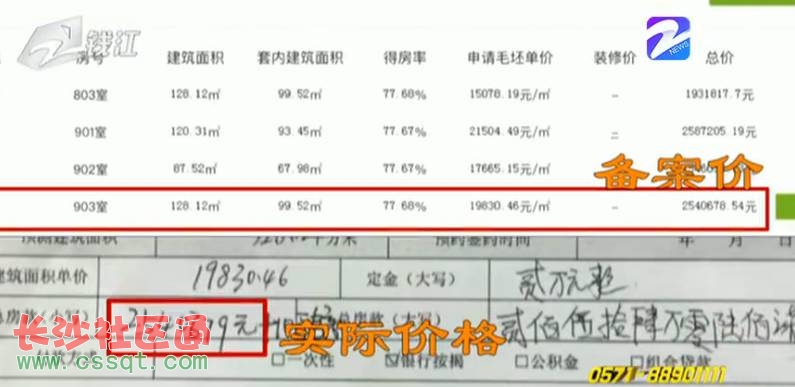 钱江
NEWS
房号 建筑面积 套内建筑面积 得房率 申请毛坯单价 装修价 总价
803室 128.12㎡ 99.52㎡ 77.68% 15078.19元/㎡ — 1931817.7元
901室 120.31㎡ 93.45㎡ 77.67% 21504.49元/㎡ — 2587205.19元
902室 87.52㎡ 67.98㎡ 77.67% 17665.15元/㎡ —
备案价
903室 128.12㎡ 99.52㎡ 77.68% 19830.46元/㎡ — 2540678.54元
预测建筑面积 平方米 预约签约时间 年 月 日
建筑面积单价 19830.46 定金（大写） 贰万元整
房款（大写） 贰佰伍拾肆万零陆佰
实际价格
长沙社区通
www.cssqt.com
□一次性 ☑银行按揭 □公积金 □组合贷款
0571-88901111